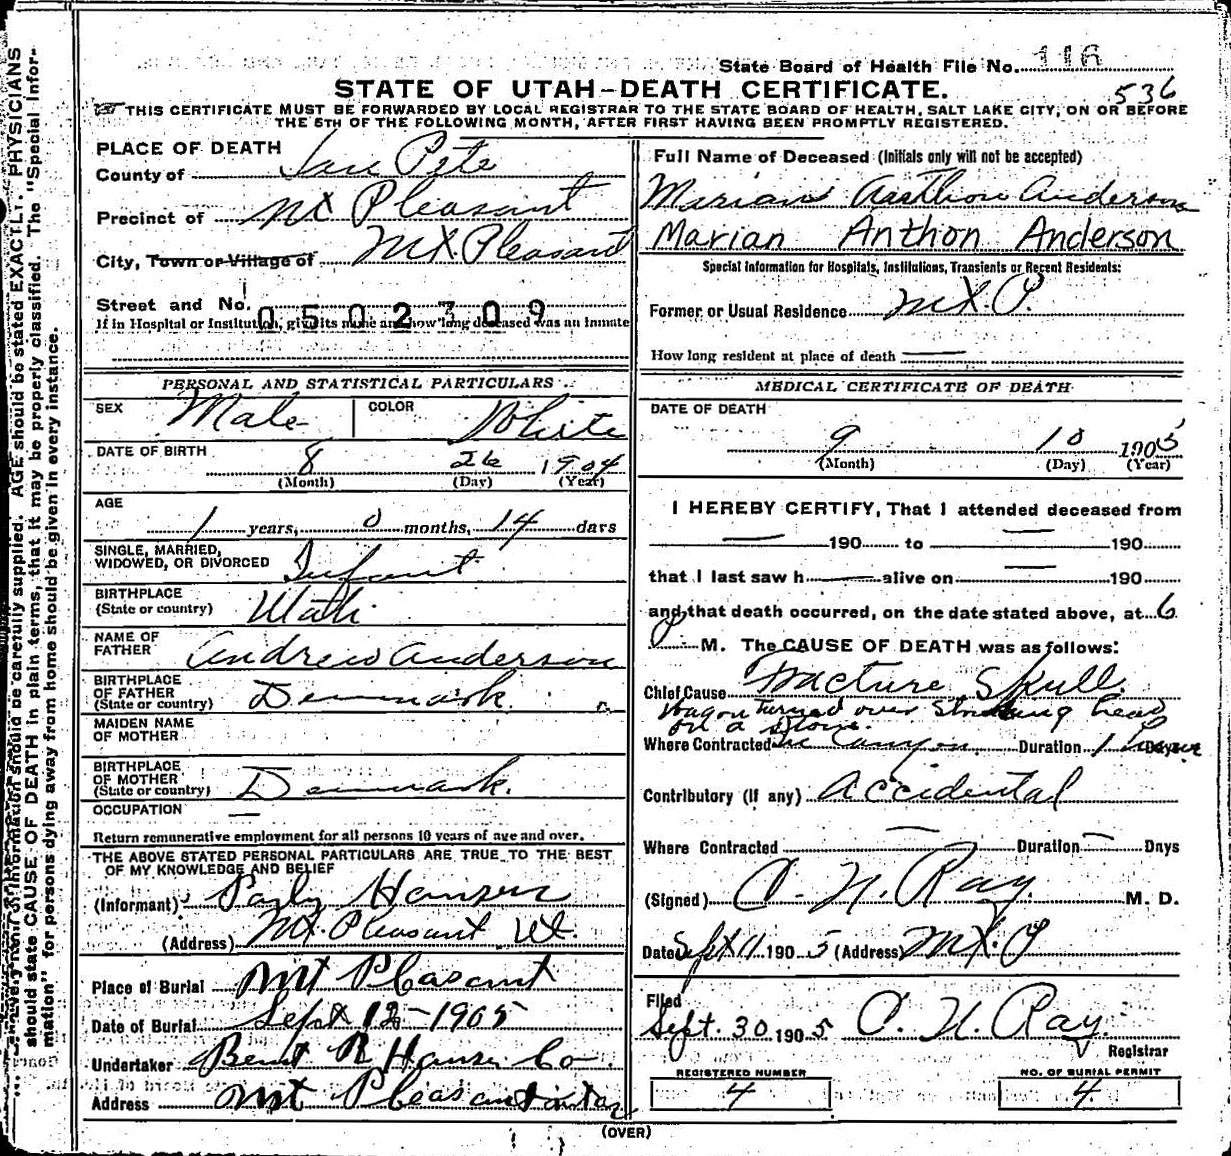 State Board of Health File No. 116
STATE OF UTAH-DEATH CERTIFICATE.
536
THIS CERTIFICATE MUST BE FORWARDED BY LOCAL REGISTRAR TO THE STATE BOARD OF HEALTH, SALT LAKE CITY, ON OR BEFORE
THE 5TH OF THE FOLLOWING MONTH, AFTER FIRST HAVING BEEN PROMPTLY REGISTERED.
PLACE OF DEATH
County of San Pete
Precinct of Mt Pleasant
City, Town or Village of Mt. Pleasant
Street and No.
0502309
If in Hospital or Institution, give its name and how long deceased was an inmate
PERSONAL AND STATISTICAL PARTICULARS
SEX Male COLOR White
DATE OF BIRTH
8 26 1904
(Month) (Day) (Year)
AGE
1 years, 0 months, 14 days
SINGLE, MARRIED,
WIDOWED, OR DIVORCED Infant
BIRTHPLACE
(State or country) Utah
NAME OF
FATHER Andrew Anderson
BIRTHPLACE
OF FATHER
(State or country) Denmark.
MAIDEN NAME
OF MOTHER
BIRTHPLACE
OF MOTHER
(State or country) Denmark.
OCCUPATION —
Return remunerative employment for all persons 10 years of age and over.
THE ABOVE STATED PERSONAL PARTICULARS ARE TRUE TO THE BEST
OF MY KNOWLEDGE AND BELIEF
(Informant) Hansen
(Address) Mt. Pleasant Ut.
Place of Burial Mt Pleasant
Date of Burial Sept 12-1905
Undertaker Bent R Hansen Co
Address Mt Pleasant Utah
Full Name of Deceased (Initials only will not be accepted)
Marian Anthon Anderson
Marian Anthon Anderson
Special Information for Hospitals, Institutions, Transients or Recent Residents:
Former or Usual Residence Mt. P.
How long resident at place of death —
MEDICAL CERTIFICATE OF DEATH
DATE OF DEATH
9 10 1905
(Month) (Day) (Year)
I HEREBY CERTIFY, That I attended deceased from
— 190 to — 190
that I last saw h — alive on — 190
and that death occurred, on the date stated above, at 6
P M. The CAUSE OF DEATH was as follows:
Chief Cause Fracture Skull.
Wagon turned over striking head
on a stone.
Where Contracted In Canyon. Duration 1 hour Days
Contributory (if any) Accidental
Where Contracted — Duration — Days
(Signed) O. N. Ray. M. D.
Date Sept 11 1905 (Address) Mt. P
Filed
Sept. 30 1905 O. N. Ray.
Registrar
REGISTERED NUMBER
4
NO. OF BURIAL PERMIT
4
(OVER)
should be carefully supplied. AGE should be stated EXACTLY. PHYSICIANS
should state CAUSE OF DEATH in plain terms, that it may be properly classified. The "Special Infor-
mation" for persons dying away from home should be given in every instance.